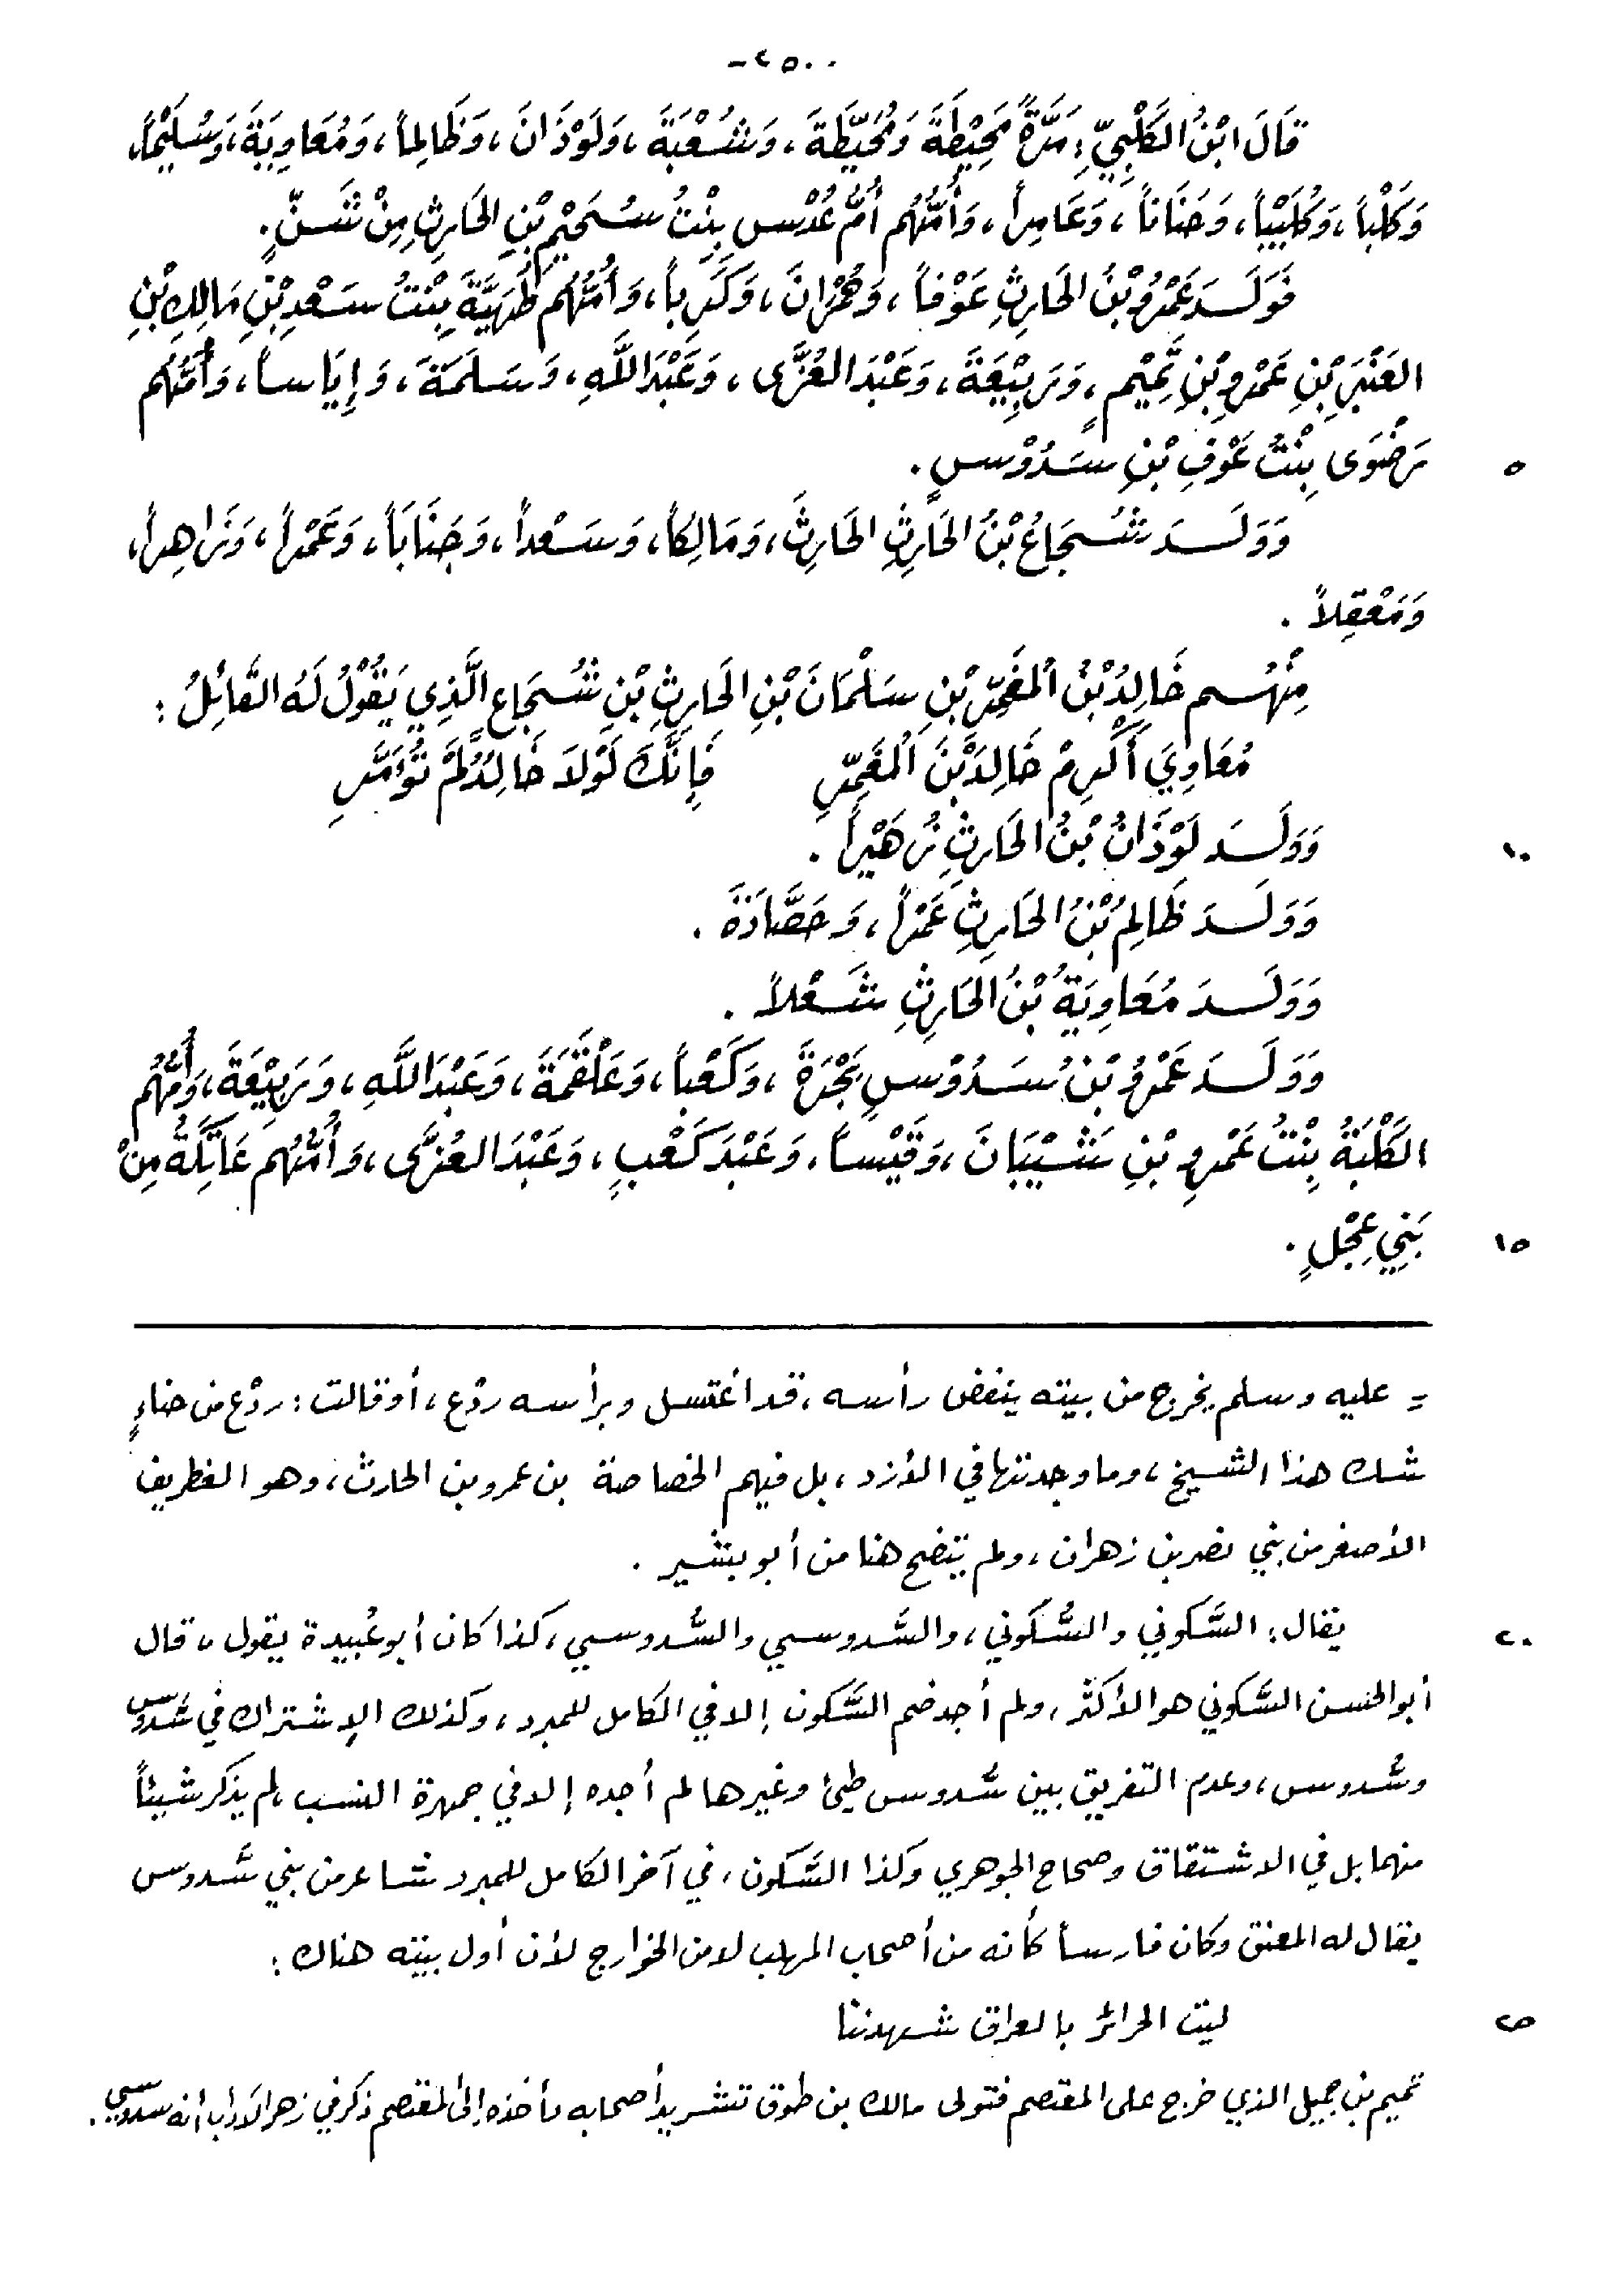 -٢٥٠-
قَالَ ابْنُ الكَلْبِيِّ: مَرَّةً مَحِيْطَةَ وَمُحَيَّطَةَ، وَشُعْبَةَ، وَلَوْذَانَ، وَظَالِماً، وَمُعَاوِيَةَ، وَسُلَيْماً،
وَكَلْباً، وَكُلَيْباً، وَحَنَاناً، وَعَامِراً، وَأُمُّهُم أُمُّ عُدْسٍ بِنْتُ سُحَيْمِ بْنِ الحَارِثِ مِنْ شَنٍّ.
فَوَلَدَ عَمْرُو بْنُ الحَارِثِ عَوْفاً، وَحُمْرَانَ، وَكَرِباً، وَأُمُّهُم طُهَيَّةُ بِنْتُ سَعْدِ بْنِ مَالِكِ بْنِ
العَنْبَرِ بْنِ عَمْرِو بْنِ تَمِيْمٍ، وَرَبِيْعَةَ، وَعَبْدَ العُزَّى، وَعَبْدَ اللَّهِ، وَسَلَمَةَ، وَإِيَاساً، وَأُمُّهُم
رَضْوَى بِنْتُ عَوْفِ بْنِ سَدُوْسٍ. ٥
وَوَلَدَ شُجَاعُ بْنُ الحَارِثِ الحَارِثَ، وَمَالِكاً، وَسَعْداً، وَجَنَاباً، وَعَمْراً، وَزَاهِراً،
وَمَعْقِلاً.
مِنْهُم خَالِدُ بْنُ المُعَمَّرِ بْنِ سَلْمَانَ بْنِ الحَارِثِ بْنِ شُجَاعٍ الَّذِي يَقُوْلُ لَهُ القَائِلُ:
مُعَاوِيَ أَكْرِمْ خَالِدَ بْنَ المُعَمَّرِ فَإِنَّكَ لَوْلاَ خَالِدٌ لَمْ تُؤَمَّرِ
وَوَلَدَ لَوْذَانُ بْنُ الحَارِثِ زُهَيْراً. ١٠
وَوَلَدَ ظَالِمُ بْنُ الحَارِثِ عَمْراً، وَحَصَّادَةَ.
وَوَلَدَ مُعَاوِيَةُ بْنُ الحَارِثِ شَعْلاً.
وَوَلَدَ عَمْرُو بْنُ سَدُوْسٍ بَجْرَةَ، وَكَعْباً، وَعَلْقَمَةَ، وَعَبْدَ اللَّهِ، وَرَبِيْعَةَ، وَأُمُّهُم
الكَلْبَةُ بِنْتُ عَمْرِو بْنِ شَيْبَانَ، وَقَيْساً، وَعَبْدَ كَعْبٍ، وَعَبْدَ العُزَّى، وَأُمُّهُم عَاتِكَةُ مِنْ
بَنِي عِجْلٍ. ١٥
= عليه وسلم يخرج من بيته ينفض رأسه، قد اغتسل وبرأسه ردْع، أو قالت: ردْع من حناءٍ
شك هذا الشيخ، وما وجدتها في الأزد، بل فيهم الخصاصة بن عمرو بن الحارث، وهو الغطريف
الأصغر من بني نصر بن زهران، ولم يتضح هنا من أبو بشير.
يقال: السَّكوني والسُّكوني، والسَّدوسي والسُّدوسي، كذا كان أبو عُبيدة يقول، قال ٢٠
أبو الحسن السَّكوني هو الأكثر، ولم أجد ضم السَّكون إلا في الكامل للمبرد، وكذلك الإشتراك في سَدوس
وسُدوس، وعدم التفريق بين سُدوس طيئ وغيرها لم أجده إلا في جمهرة النسب، لم يذكر شيئاً
منهما بل في الاشتقاق وصحاح الجوهري وكذا السَّكون، في آخر الكامل للمبرد شاعر من بني سَدوس
يقال له المعنق وكان فارساً كأنه من أصحاب المهلب لامن الخوارج لأن أول بيته هناك:
ليت الحرائر بالعراق شهدننا ٢٥
تميم بن جميل الذي خرج على المعتصم فتولى مالك بن طوق تشريد أصحابه وأخذه إلى المعتصم ذكر في زهر الآداب أنه سدوسي.